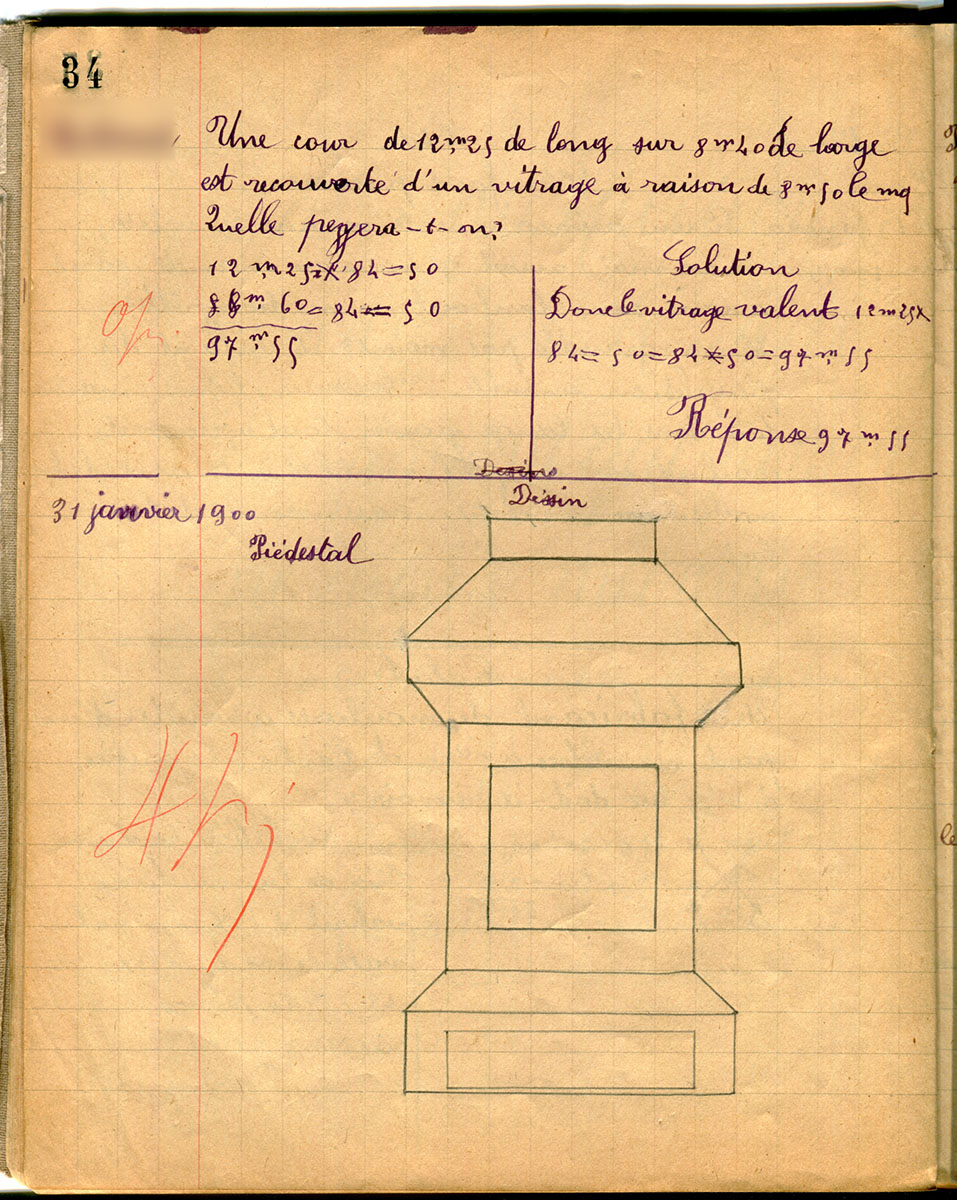 34
Une cour de 12m25 de long sur 8m40 de large
est recouverte d'un vitrage à raison de 8m50 le mq
Quelle peyera-t-on?
12m25 × 84 = 50
m 60 = 84 = 50
97m55
Solution
Donc le vitrage valent 12m25 ×
84 = 50 = 84 × 50 = 97m55
Réponse 97m55
Dessin
31 janvier 1900
Piédestal